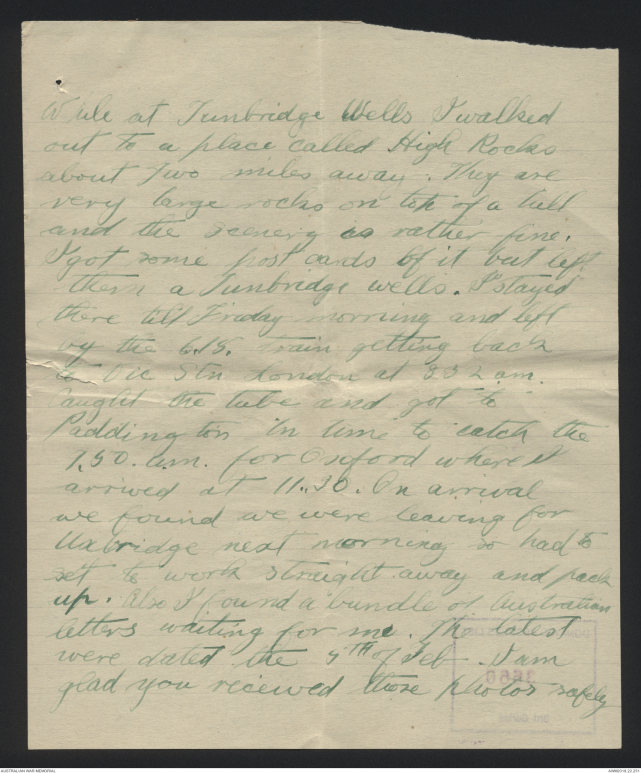 While at Tunbridge Wells I walked
out to a place called High Rocks
about two miles away. They are
very large rocks on top of a hill
and the scenery is rather fine.
I got some post cards of it but left
them a Tunbridge wells. I stayed
there till Friday morning and left
by the 6.15. train getting back
to Vic Stn London at 8 32 am.
Caught the tube and got to
Paddington in time to catch the
9.50. a.m. for Oxford where I
arrived at 11.30. On arrival
we found we were leaving for
Uxbridge next morning so had to
set to work straight away and pack
up. Also I found a bundle of Australian
letters waiting for me. The latest
were dated the of Feb. I am
glad you received those photos safely
AUSTRALIAN WAR MEMORIAL